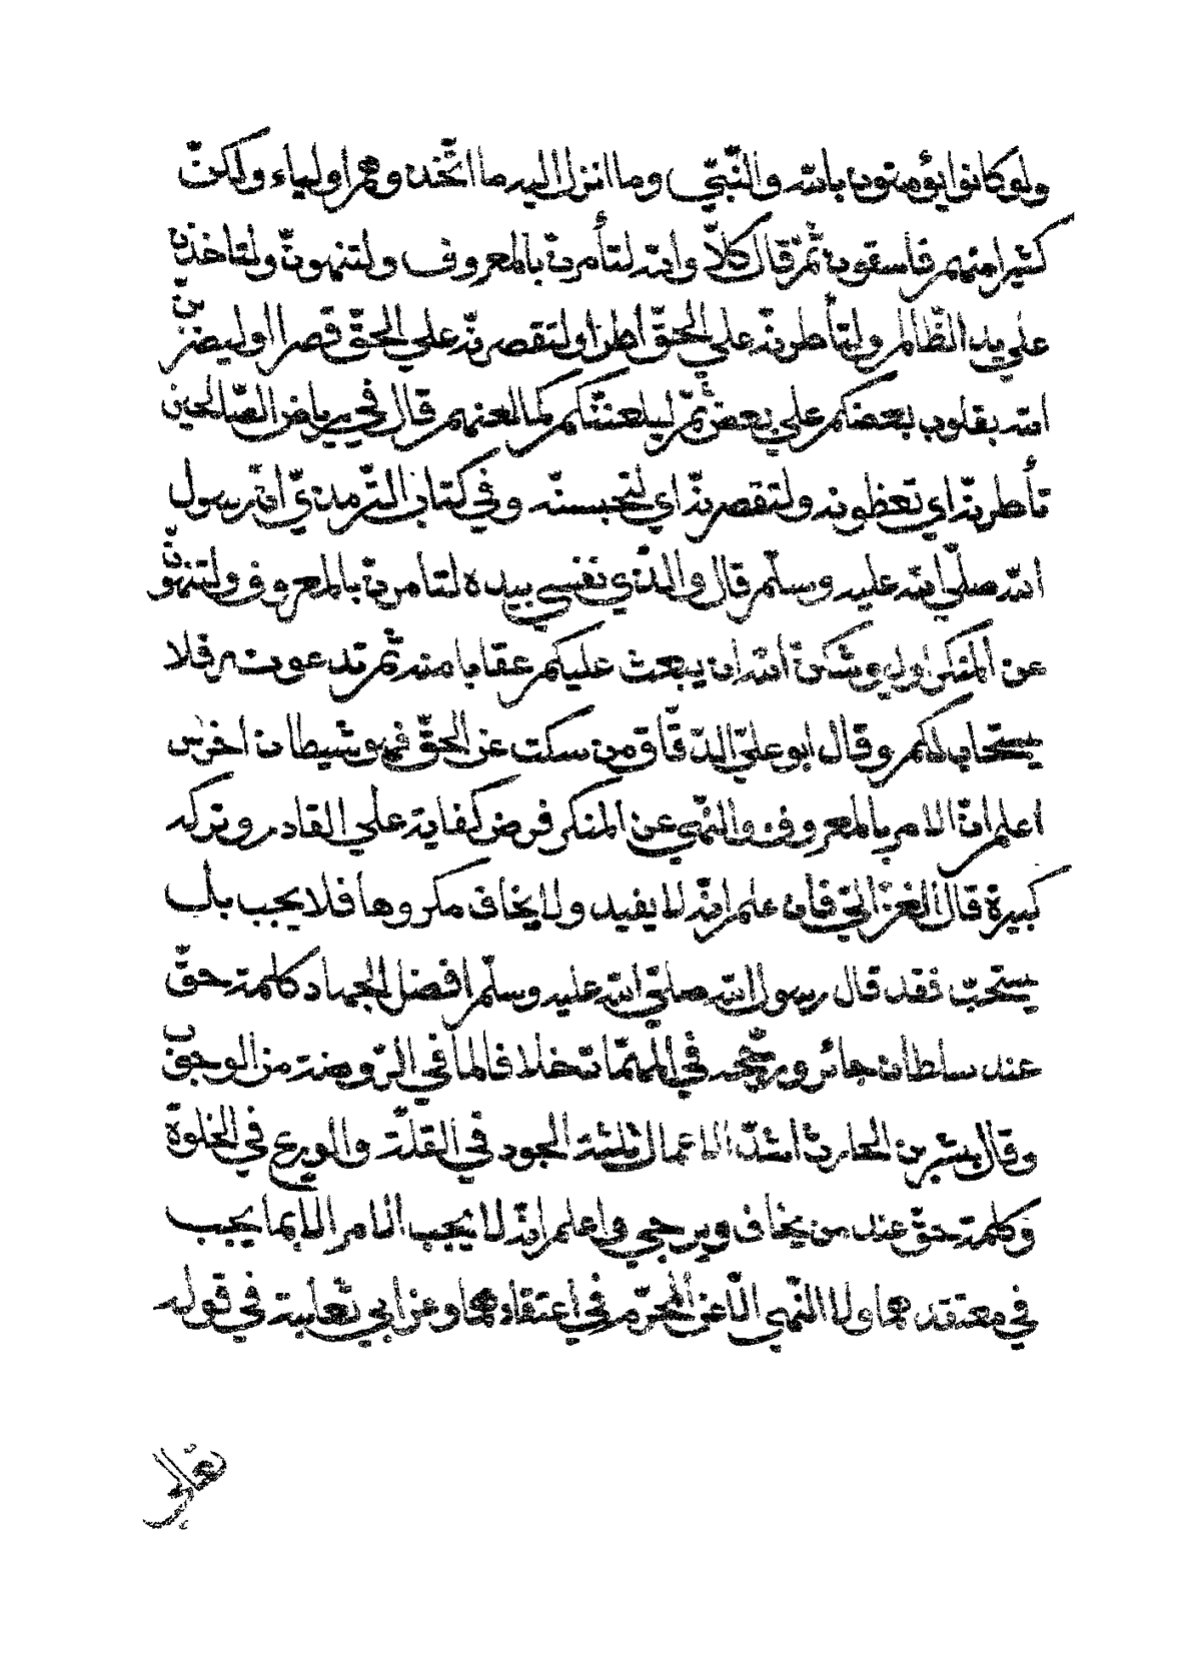 ولو كانوا يؤمنون بالله والنّبيّ وما انزل اليه ما اتّخذوهم اولياء ولكنّ
كثيرا منهم فاسقون ثمّ قال كلّا والله لتأمرنّ بالمعروف ولتنهونّ ولتاخذنّ
علي يد الظّالم ولتأطرنّه علي الحقّ اطرا ولتقصرنّه علي الحقّ قصرا او ليضربنّ
الله بقلوب بعضكم علي بعض ثمّ ليلعننّكم كما لعنهم قال في رياض الصّالحين
تأطرنّه اي تعظونه ولتقصرنّه اي لتحبسنّه وفي كتاب التّرمذيّ انّ رسول
الله صلّي الله عليه وسلّم قال والّذي نفسي بيده لتامرنّ بالمعروف ولتنهونّ
عن المنكر او ليوشكنّ الله ان يبعث عليكم عقابا منه ثمّ تدعونه فلا
يستجاب لكم وقال ابو عليّ الدّقّاق من سكت عن الحقّ فهو شيطان اخرس
اعلم انّ الامر بالمعروف والنّهي عن المنكر فرض كفاية علي القادر وتركه
كبيرة قال الغزّاليّ فان علم انّه لا يفيد ولا يخاف مكروها فلا يجب بل
يستحبّ فقد قال رسول الله صلّي الله عليه وسلّم افضل الجهاد كلمة حقّ
عند سلطان جائر ورجّحه في المهمّات خلافا لما في الرّوضة من الوجوب
وقال بشر بن الحارث اشدّ الاعمال ثلثة الجود في القلّة والورع في الخلوة
وكلمة حقّ عند من يخاف ويرجي واعلم انّه لا يجب الامر الا بما يجب
في معتقدهما ولا النّهي الّا عن المحرّم في اعتقادهما وعن ابي ثعلبة في قوله
تعالى